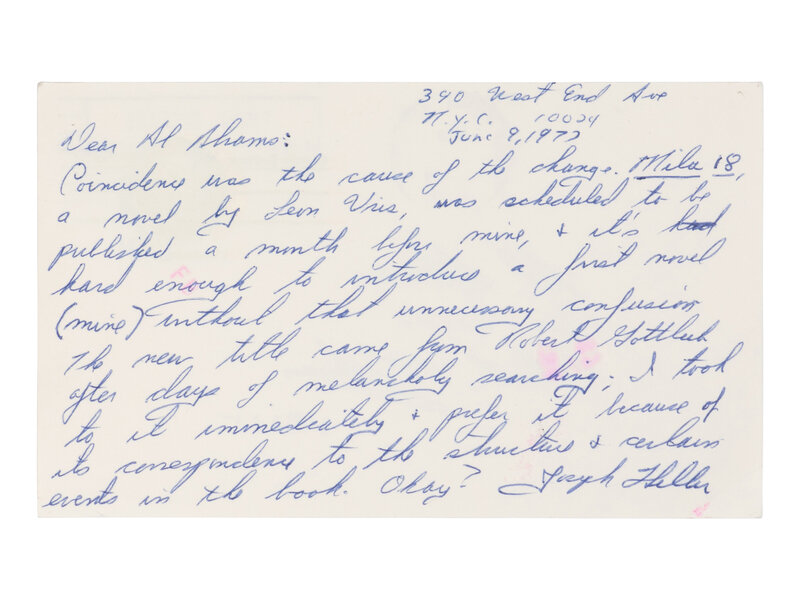 390 West End Ave
N.Y.C. 10024
June 9, 1977
Dear Al Shams:
Coincidence was the cause of the change. Mila 18,
a novel by Leon Uris, was scheduled to be
published a month before mine, & it's
hard enough to introduce a first novel
(mine) without that unnecessary confusion.
The new title came from Robert Gottlieb
after days of melancholy searching; I took
to it immediately & prefer it because of
its correspondence to the structure & certain
events in the book. Okay? Joseph Heller